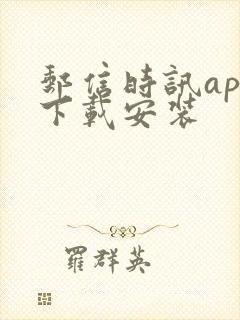 郵信時訊ap
下載安裝
羅群英